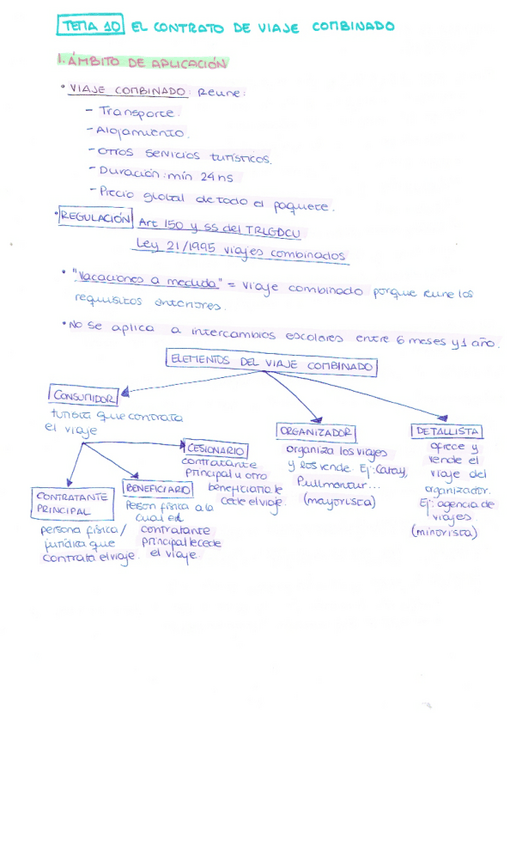 TEMA 10 EL CONTRATO DE VIAJE COMBINADO
1. ÁMBITO DE APLICACIÓN
• VIAJE COMBINADO: Reune:
- Transporte.
- Alojamiento.
- Otros servicios turísticos.
- Duración: mín 24hs
- Precio global de todo el paquete.
• REGULACIÓN Art 150 y ss del TRLGDCU
Ley 21/1995 viajes combinados
• "Vacaciones a medida" = viaje combinado porque reune los
requisitos anteriores.
• No se aplica a intercambios escolares entre 6 meses y 1 año.
ELEMENTOS DEL VIAJE COMBINADO
CONSUMIDOR
turista que contrata
el viaje
CONTRATANTE
PRINCIPAL
persona física/
jurídica que
contrata el viaje.
BENEFICIARIO
Person física a la
cual el
contratante
principal cede
el viaje.
CESIONARIO
contratante
principal u otro
beneficiario le
cede el viaje.
ORGANIZADOR
organiza los viajes
y los vende. Ej: Caray,
Pullmantur...
(mayorista)
DETALLISTA
ofrece y
vende el
viaje del
organizador.
Ej: agencia de
viajes.
(minorista)